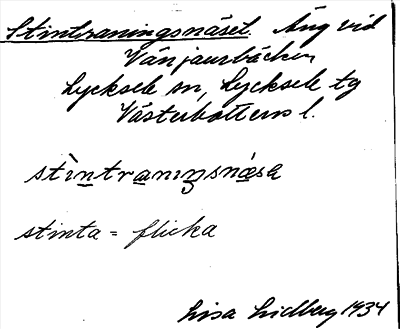 Stintraningsnäset. Äng vid
Vänjaurbäcken
Lycksele sn, Lycksele tg
Västerbottens l.
stìntranıŋsnä́sə
stinta = flicka
Lisa Lidberg 1934